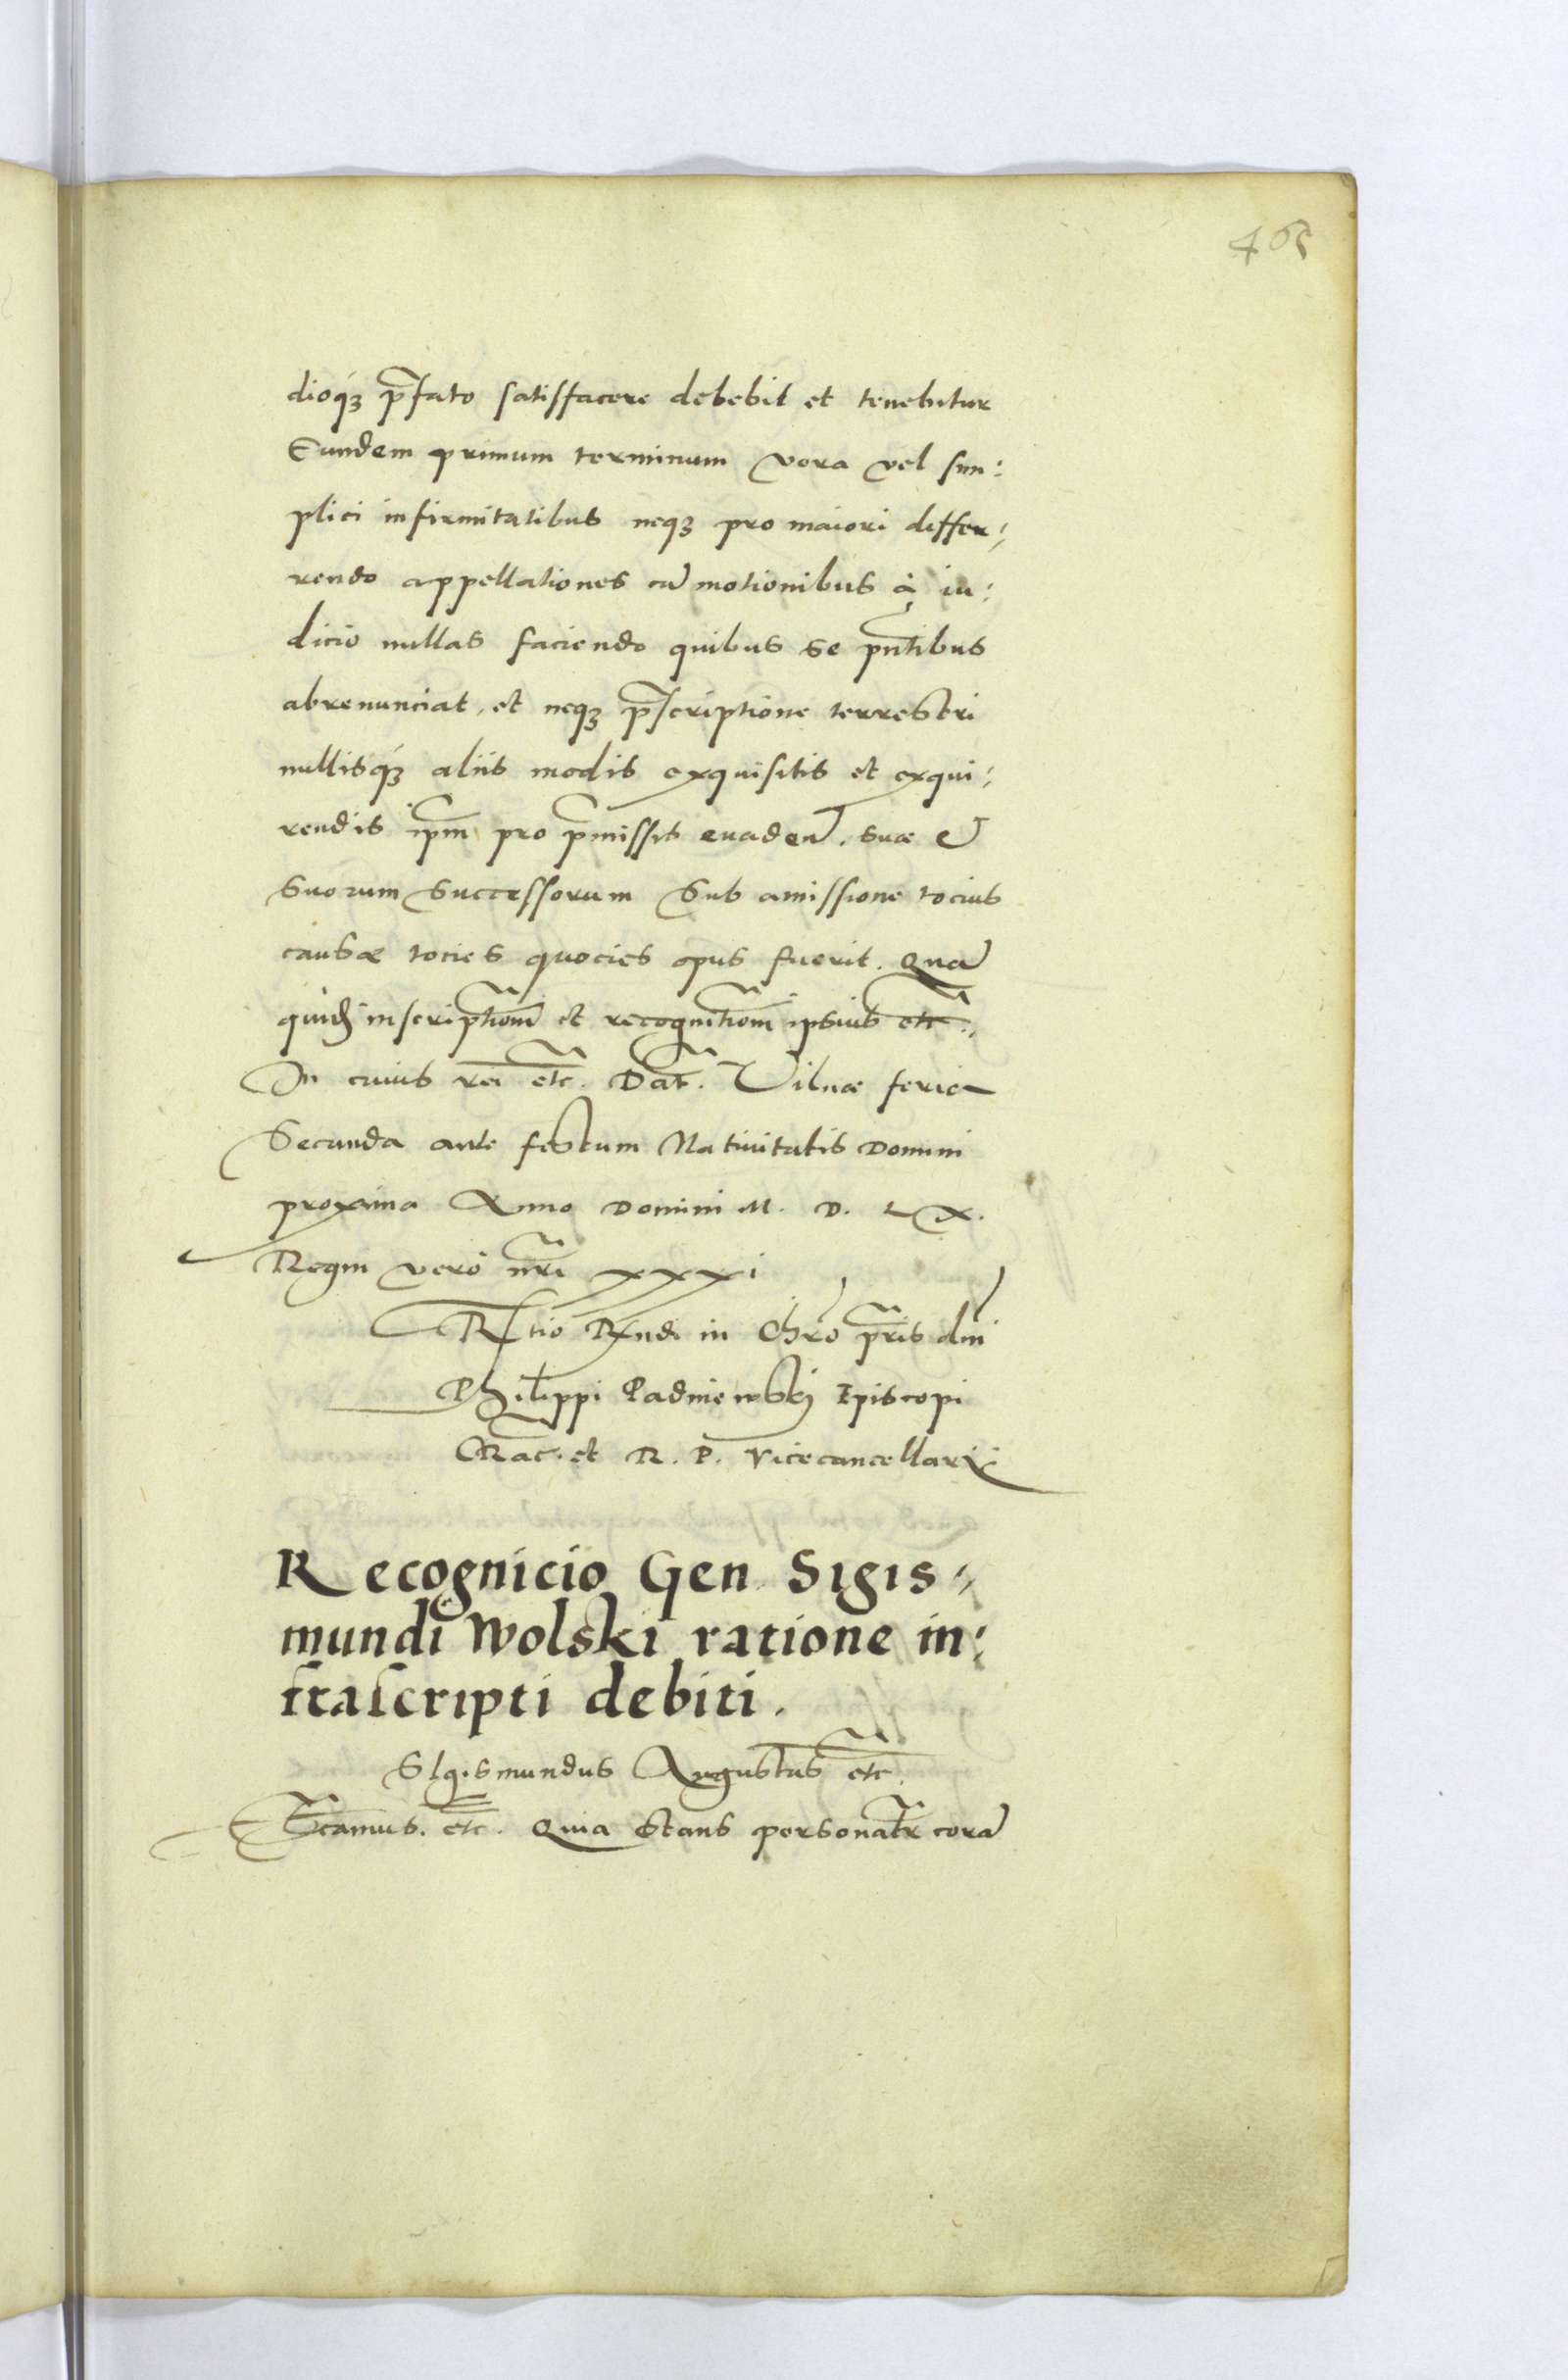 465
dioq₃ p̃fato satisfacere debebit et tenebitur
Eundem primum terminum vera vel sim:
plici infirmitatibus neq₃ pro maiori differ:
rendo appellationes cũ motionibus à iu:
dicio nullas faciendo quibus se pñtibus
abrenunciat, et neq₃ p̃scriptione terrestri
nullisq₃ aliis modis exquisitis et exqui:
rendis ip̃m pro p̃missis evaden. suæ et
Suorum Successorum Sub amissione tocius
causæ tocies quocies opus fuerit. Quã
quid inscriptiom̃ et recognitiom̃ ipsius etc.
In cuius rei etc. Dat. Vilnæ feria
Secunda ante festum Nativitatis Domini
proxima Anno Domini M. D. LX.
Regni verò nr̃i xxxi
Rtio Rndi in Chrõ pris dñi
Philippi Padniewskj Episcopi
Crac. et R. P. Vicecancellarii
Recognicio Gen. Sigis:
mundi Wolski ratione in:
frascripti debiti.
SIgismundus Augustus etc.
Scamus. etc. Quia Stans personalr̃ corã